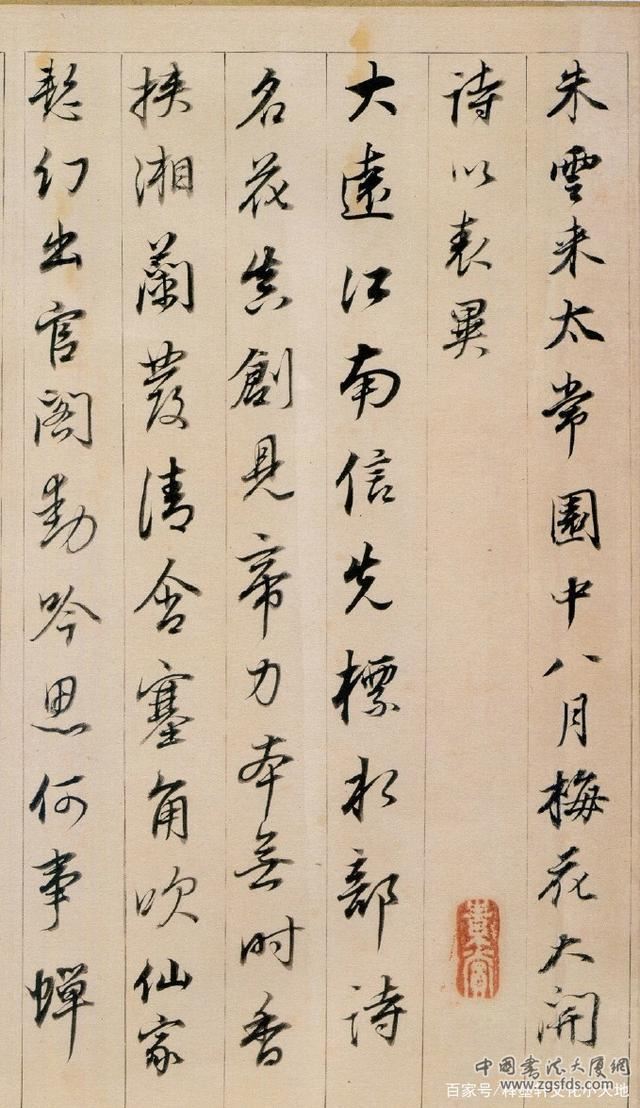 朱雲来太常園中八月梅花大開
詩以表異
大遠江南信先標水部詩
名花真創見帝力本無時香
挾湘蘭發清含塞角吹仙家
愁幻出官閣動吟思何事蟬
中国书法大厦网
www.zgsfds.com
百家号/释墨轩文化小天地